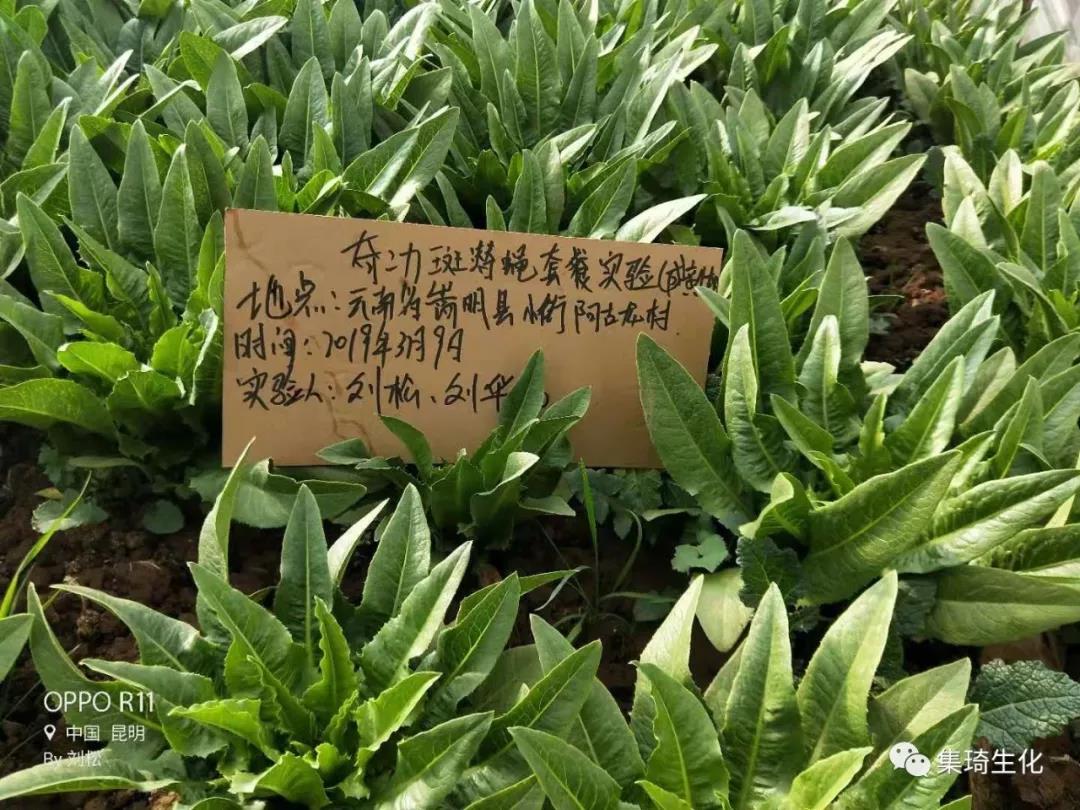 夺力斑潜蝇套餐实验
地点:云南省嵩明县小街阿古龙村
时间:2019年3月9日
实验人:刘松、刘华
OPPO R11
中国 昆明
By 刘松
集琦生化